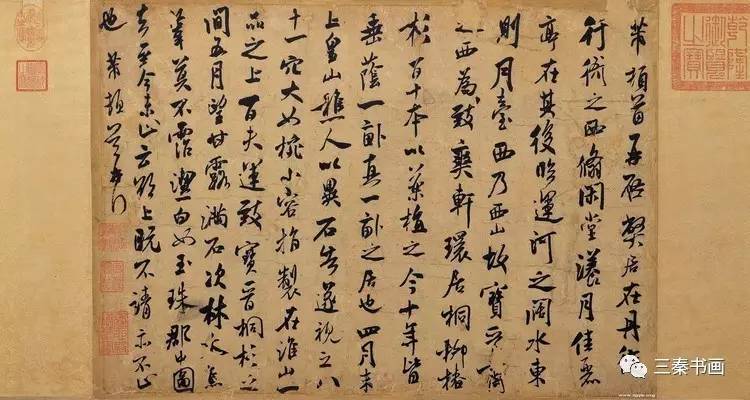 芾頓首再啓弊居在丹徒
行衙之西翛閑堂漾月佳麗
亭在其後臨運河之闊水東
則月臺西乃西山故寶晉齋
之西為致爽軒環居桐柳椿
杉百十本以藥植之今十年皆
垂蔭一畝真一畝之居也四月末
上皇山樵人以異石告遂視之八
十一穴大如椀小容指製在淮山一
品之上百夫運致寶晉桐杉之
間五月望甘露滿石次林木焦
葦莫不霑潔白如玉珠郡中圖
去至今未止云欲上既不請亦不止
也芾頓首再拜
乾隆御覽之寶
三秦书画